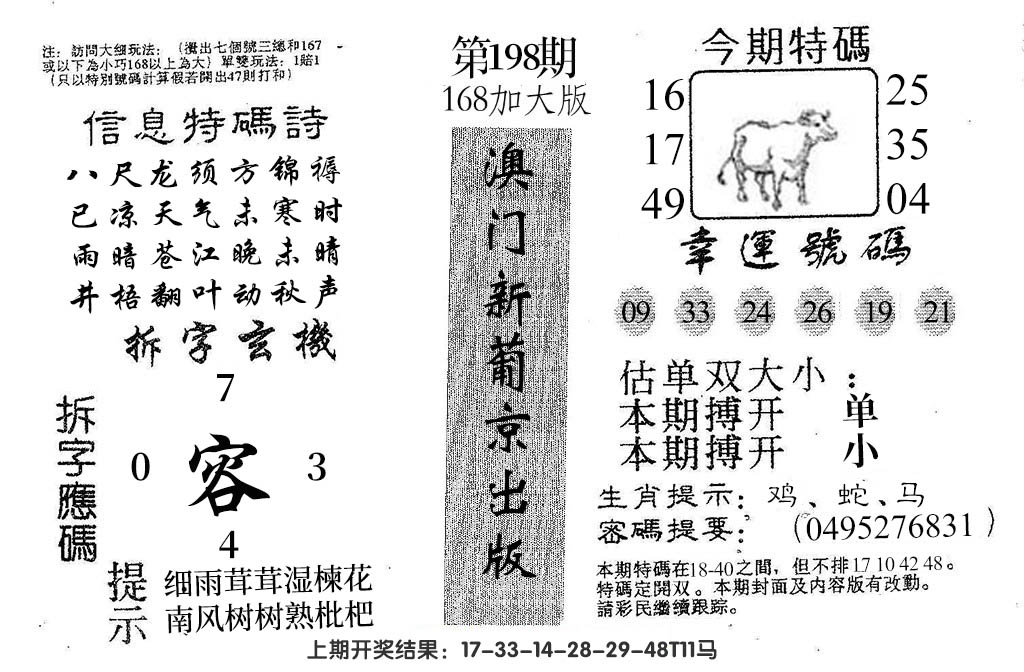 注：訪問大细玩法：（攪出七個號三總和167
或以下為小巧168以上為大）單雙玩法：1賠1
（只以特別號碼計算假若開出47則打和）
信息特碼詩
八尺龙须方锦褥
已凉天气未寒时
雨暗苍江晚未晴
井梧翻叶动秋声
拆字玄機
拆字應碼
7
0 容 3
4
提示
细雨茸茸湿楝花
南风树树熟枇杷
第198期
168加大版
澳门新葡京出版
今期特碼
16 25
17 35
49 04
幸運號碼
09 33 24 26 19 21
估单双大小：
本期搏开 单
本期搏开 小
生肖提示：鸡、蛇、马
密碼提要：（0495276831）
本期特碼在18-40之間，但不排17 10 42 48。
特碼定開双。本期封面及内容版有改動。
請彩民繼續跟踪。
上期开奖结果：17-33-14-28-29-48T11马